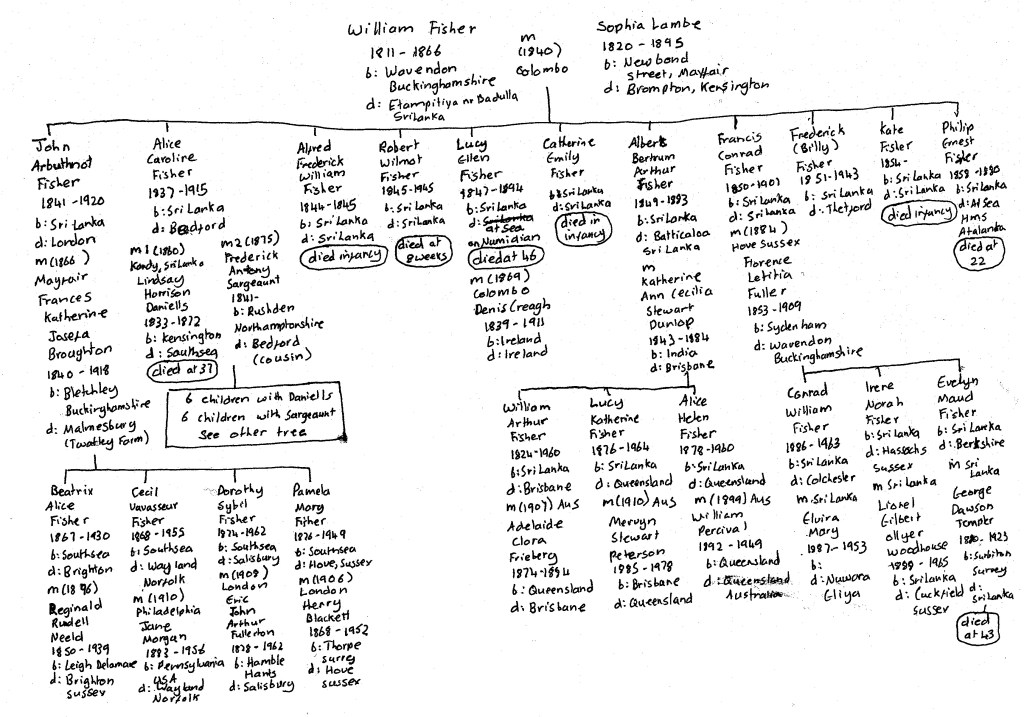 William Fisher
1811 - 1866
b: Wavendon
Buckinghamshire
d: Etampitiya nr Badulla
Sri Lanka
m
(1840)
Colombo
Sophia Lambe
1820 - 1895
b: New bond
street, Mayfair
d: Brompton, Kensington
John
Arbuthnot
Fisher
1841 - 1920
b: Sri Lanka
d: London
m (1866)
Mayfair
Frances
Katherine
Josefa
Broughton
1840 - 1918
b: Bletchley
Buckinghamshire
d: Malmesbury
(Twatley Farm)
Alice
Caroline
Fisher
1837 - 1915
b: Sri Lanka
d: Bedford
m1 (1860)
Kandy, Sri Lanka
Lindsay
Horrison
Daniells
1833 - 1872
b: Kensington
d: Southsea
died at 37
m2 (1875)
Frederick
Antony
Sargeaunt
1841-
b: Rushden
Northamptonshire
d: Bedford
(cousin)
6 children with Daniells
6 children with Sargeaunt
see other tree
Alfred
Frederick
William
Fisher
1844 - 1845
b: Sri Lanka
d: Sri Lanka
died infancy
Robert
Wilmot
Fisher
1845 - 1945
b: Sri Lanka
d: Sri Lanka
died at
8 weeks
Lucy
Ellen
Fisher
1847 - 1894
b: Sri Lanka
d: Sri Lanka
at Sea
on Numidian
died at 46
m (1869)
Colombo
Denis Creagh
1839 - 1911
b: Ireland
d: Ireland
Catherine
Emily
Fisher
b: Sri Lanka
d: Sri Lanka
died in
infancy
Albert
Bertrum
Arthur
Fisher
1849 - 1893
b: Sri Lanka
d: Batticaloa
Sri Lanka
m
Katherine
Ann Cecilia
Stewart
Dunlop
1843 - 1884
b: India
d: Brisbane
Francis
Conrad
Fisher
1850 - 1901
b: Sri Lanka
d: Sri Lanka
m (1884)
Hove Sussex
Florence
Letitia
Fuller
1853 - 1909
b: Sydenham
d: Wavendon
Buckinghamshire
Frederick
(Billy)
Fisher
1851 - 1943
b: Sri Lanka
d: Thetford
Kate
Fisher
1854 -
b: Sri Lanka
d: Sri Lanka
died infancy
Philip
Ernest
Fisher
1858 - 1880
b: Sri Lanka
d: At Sea
HMS
Atalanta
died at
22
Beatrix
Alice
Fisher
1867 - 1930
b: Southsea
d: Brighton
m (1896)
Reginald
Rundell
Neeld
1850 - 1939
b: Leigh Delamare
d: Brighton
Sussex
Cecil
Vavasseur
Fisher
1868 - 1955
b: Southsea
d: Wayland
Norfolk
m (1910)
Philadelphia
Jane
Morgan
1883 - 1956
b: Pennsylvania
USA
d: Wayland
Norfolk
Dorothy
Sybil
Fisher
1874 - 1962
b: Southsea
d: Salisbury
m (1908)
London
Eric
John
Arthur
Fullerton
1878 - 1962
b: Hamble
Hants
d: Salisbury
Pamela
Mary
Fisher
1876 - 1949
b: Southsea
d: Hove, Sussex
m (1906)
London
Henry
Blackett
1868 - 1952
b: Thorpe
Surrey
d: Hove
Sussex
William
Arthur
Fisher
1824 - 1960
b: Sri Lanka
d: Brisbane
m (1907) Aus
Adelaide
Clora
Frieberg
1874 - 1954
b: Queensland
d: Brisbane
Lucy
Katherine
Fisher
1876 - 1964
b: Sri Lanka
d: Queensland
m (1910) Aus
Mervyn
Stewart
Peterson
1885 - 1978
b: Brisbane
d: Queensland
Alice
Helen
Fisher
1878 - 1960
b: Sri Lanka
d: Queensland
m (1899) Aus
William
Percival
1892 - 1949
b: Queensland
d: Queensland
Australia
Conrad
William
Fisher
1886 - 1963
b: Sri Lanka
d: Colchester
m: Sri Lanka
Elvira
Mary
1887 - 1953
b:
d: Nuwara
Eliya
Irene
Norah
Fisher
b: Sri Lanka
d: Hassocks
Sussex
m Sri Lanka
Lionel
Gilbert
Ollyer
Woodhouse
1888 - 1965
b: Sri Lanka
d: Cuckfield
Sussex
Evelyn
Maud
Fisher
b: Sri Lanka
d: Berkshire
m Sri
Lanka
George
Dawson
Templer
1880 - 1923
b: Surbiton
Surrey
d:
Sri Lanka
died
at 43